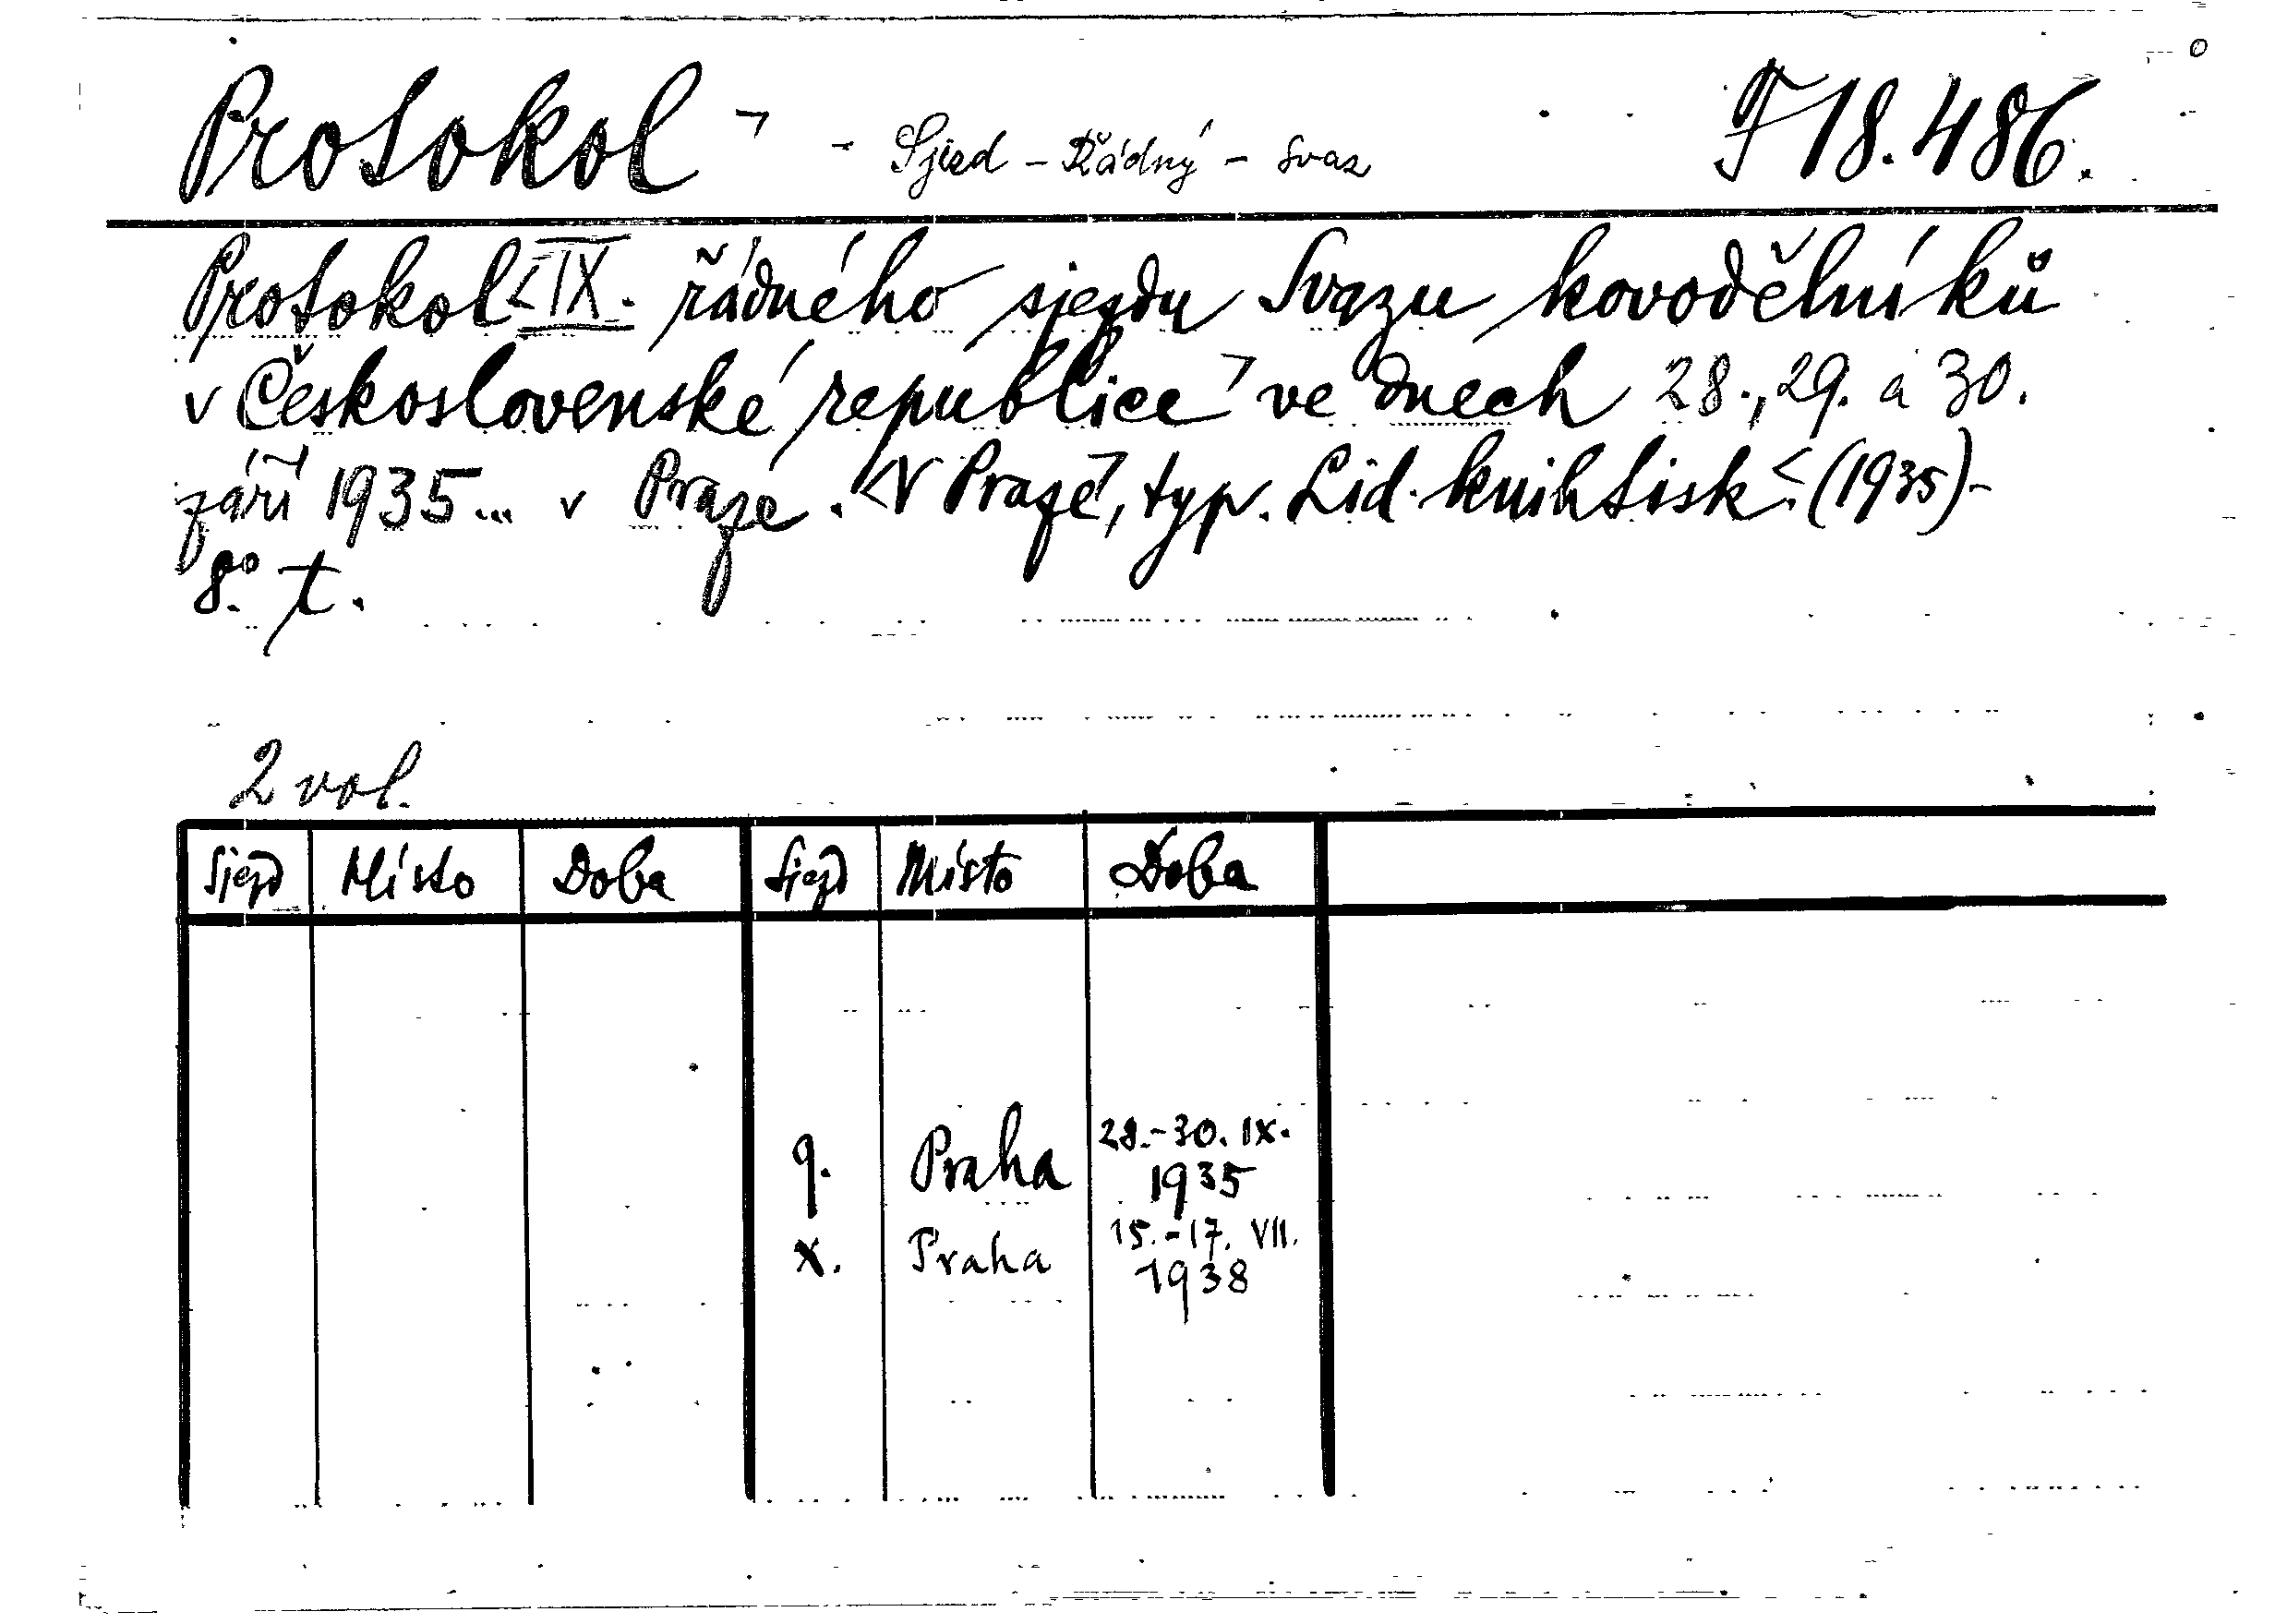 Protokol ¬ - Sjezd - Řádný - svaz F 18.486.
Protokol <IX. řádného sjezdu Svazu kovodělníků
v Československé republice ¬ ve dnech 28., 29. a 30.
září 1935... v Praze. <V Praze¬, typ. Lid. knihtisk.<(1935)-
8°. t.
2 vol.
Sjezd Místo Doba Sjezd Místo Doba
9. Praha 28.-30. IX. 1935
X. Praha 15.-17. VII. 1938